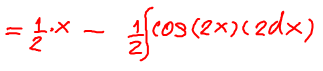 = 1/2 · x - 1/2 ∫ cos(2x)(2dx)